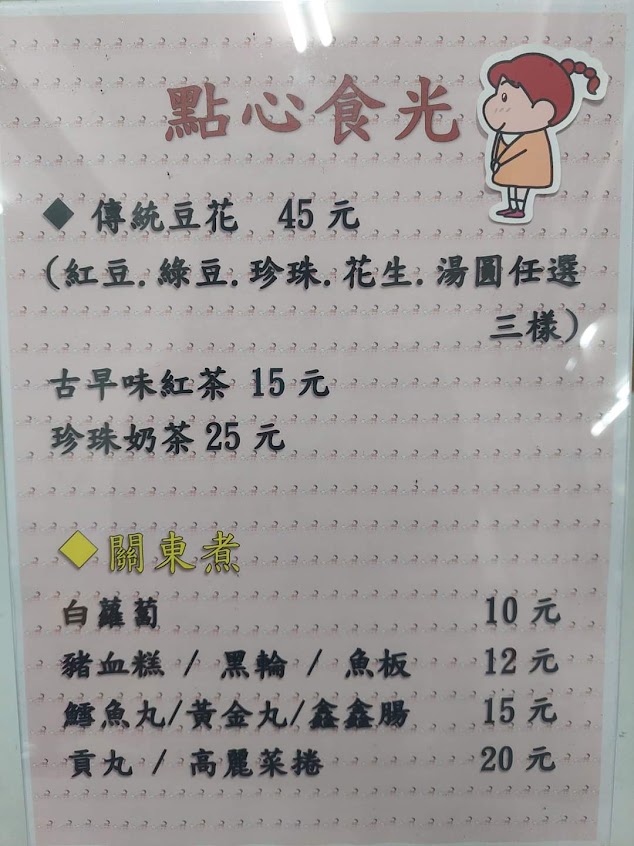 點心食光
◆ 傳統豆花 45 元
(紅豆.綠豆.珍珠.花生.湯圓任選
三樣)
古早味紅茶 15 元
珍珠奶茶 25 元
◆關東煮
白蘿蔔 10 元
豬血糕 / 黑輪 / 魚板 12 元
鱈魚丸/黃金丸/鑫鑫腸 15 元
貢丸 / 高麗菜捲 20 元